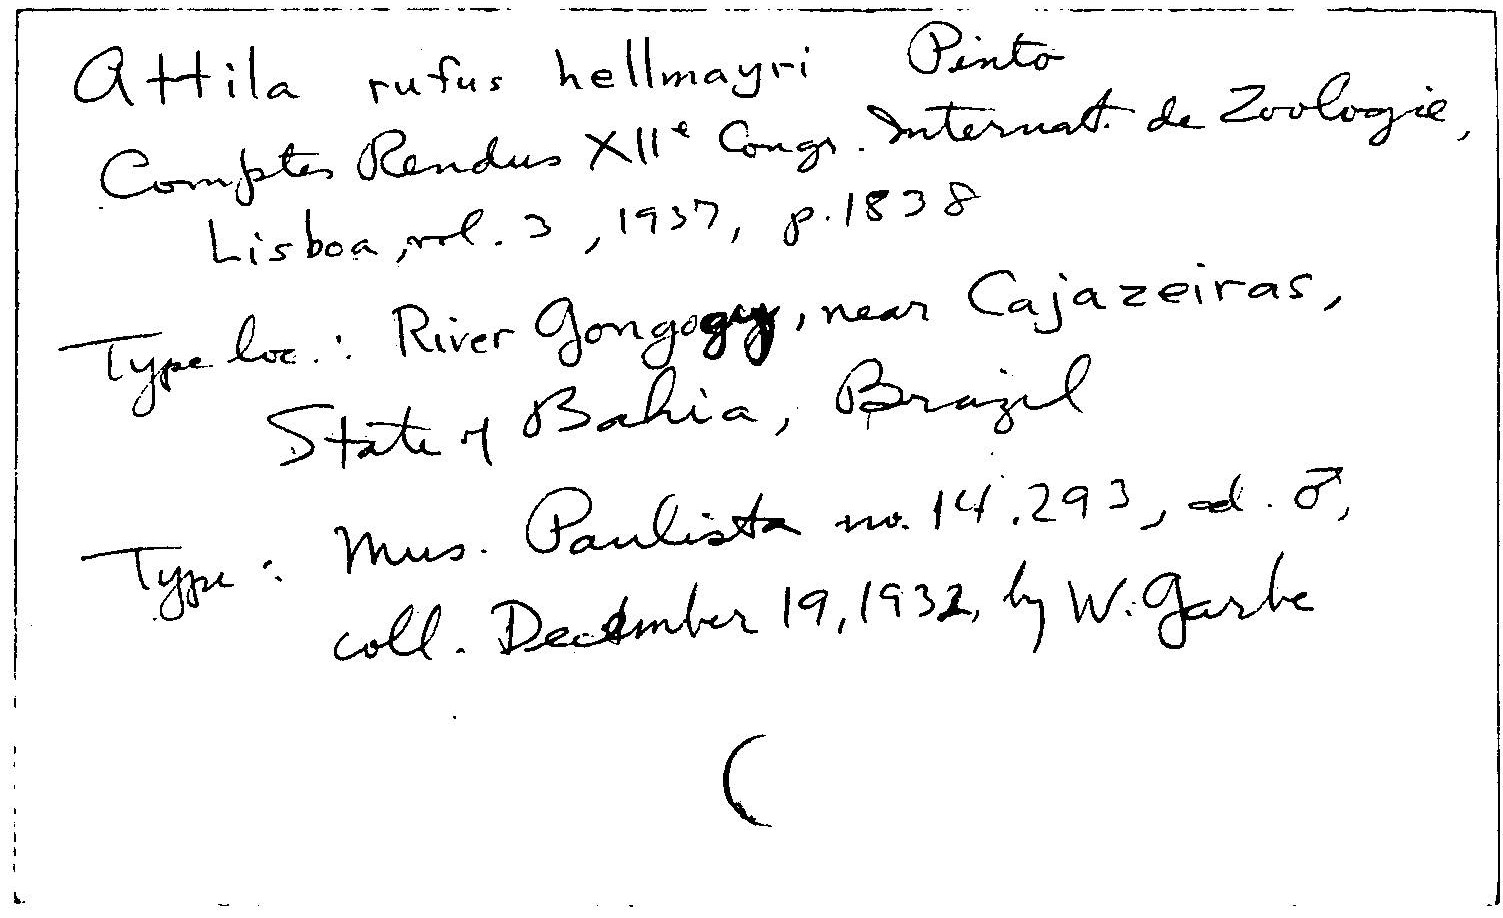 Attila rufus hellmayri Pinto
Comptes Rendus XIIe Congr. Internat. de Zoologie,
Lisboa, vol. 3, 1937, p. 1838
Type loc.: River Gongogy, near Cajazeiras,
State of Bahia, Brazil
Type: Mus. Paulista no. 14.293, ad. ♂,
coll. December 19, 1932, by W. Garbe